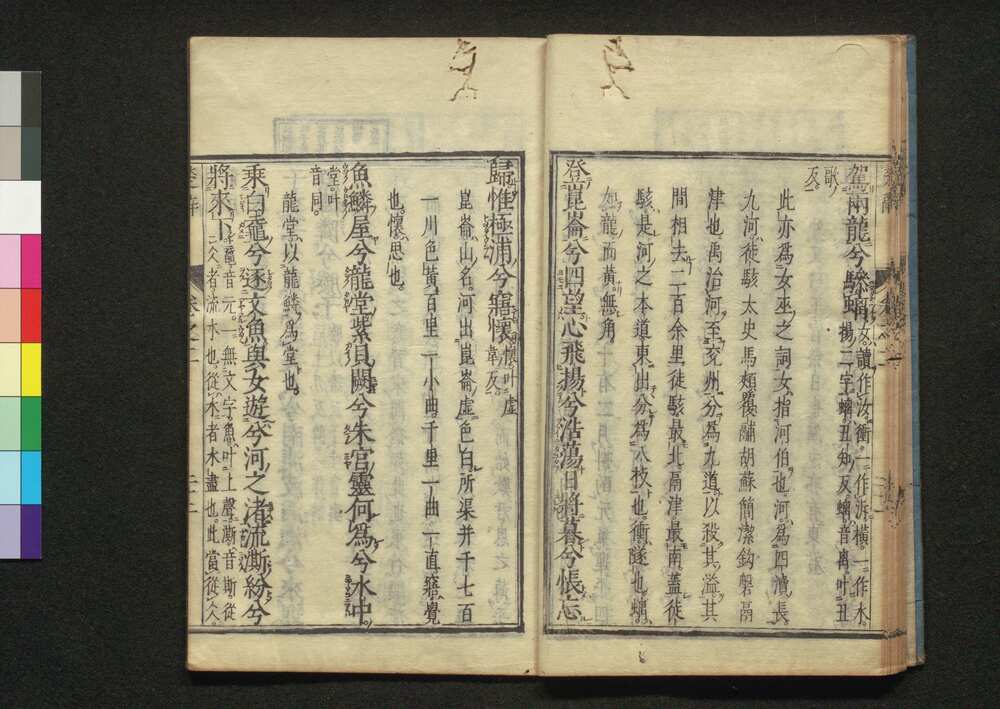 駕兩龍兮驂螭女讀作汝衝一作泝橫一作水
揚二字螭丑知反螭音再叶丑
歌
反
此亦爲女巫之詞女指河伯也河爲四瀆長
九河徒駭太史馬頰覆鬴胡蘇簡潔鈎磐鬲
津也禹治河至兗州分爲九道以殺其溢其
間相去二百余里徒駭最北鬲津最南蓋徒
駭是河之本道東出分爲八枝也衝隧也螭
如龍而黃無角
登崑崙兮四望心飛揚兮浩蕩日將暮兮悵忘
歸惟極浦兮寤懷懷叶虛
韋反
崑崙山名河出崑崙虛色白所渠并千七百
一川色黃百里一小曲千里一曲一直寤覺
也懷思也
魚鱗屋兮龍堂紫貝闕兮朱宮靈何爲兮水中
堂叶
音同
龍堂以龍鱗爲堂也
乘白黿兮逐文魚與女遊兮河之渚流澌紛兮
將來下黿音元一無文字魚叶上聲澌音斯從
仌者流水也從水者水盡也此當從仌
楚辭
卷之二